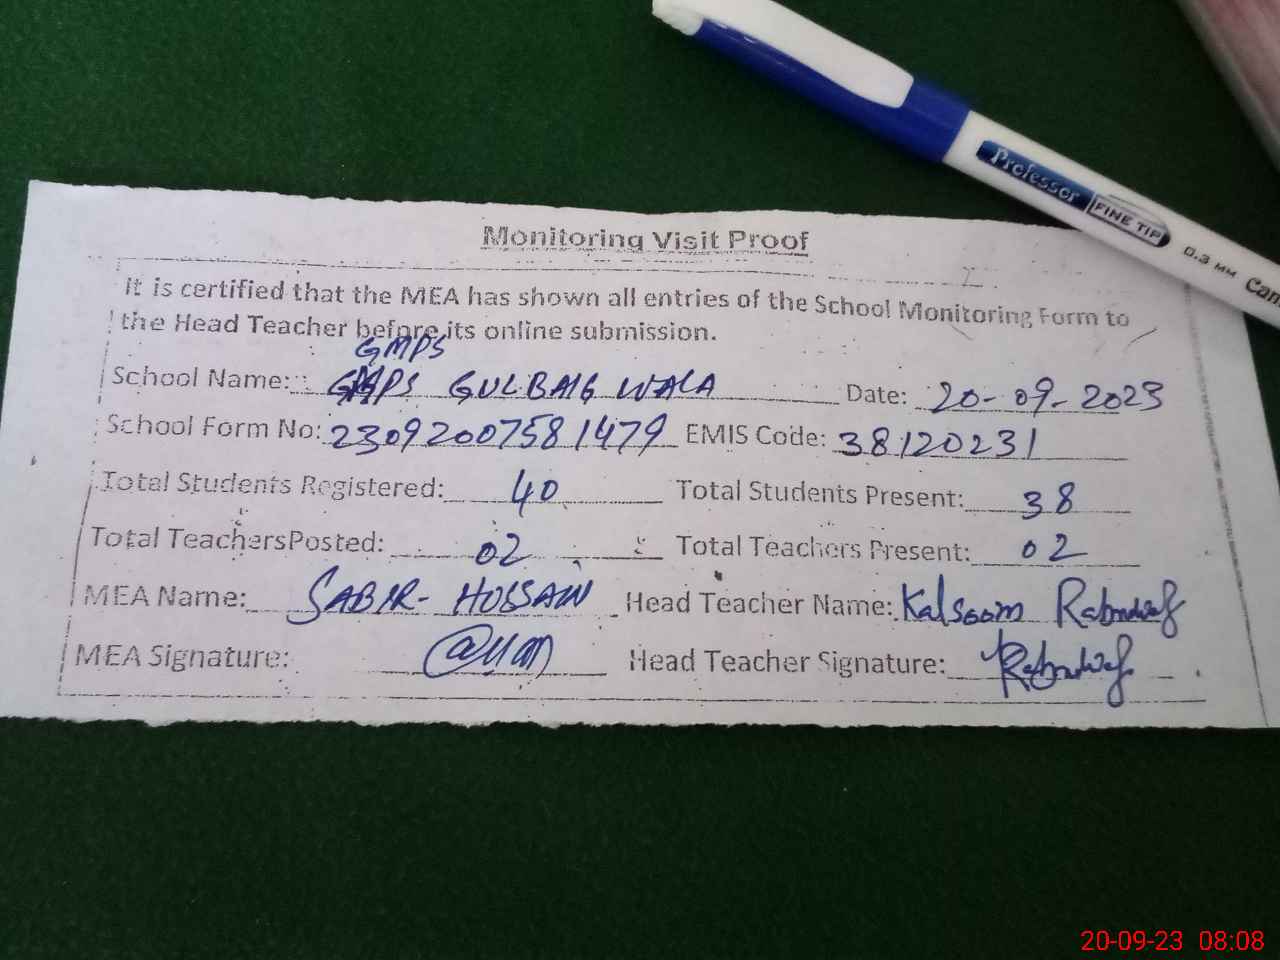 Professor FINE TIP 0.3 MM
Monitoring Visit Proof
It is certified that the MEA has shown all entries of the School Monitoring Form to
the Head Teacher before its online submission.
GMPS
School Name: GULBAIG WALA Date: 20-09-2023
School Form No: 2309200758 1479 EMIS Code: 38120231
Total Students Registered: 40 Total Students Present: 38
Total TeachersPosted: 02 Total Teachers Present: 02
MEA Name: SABIR- HUSSAIN Head Teacher Name: Kalsoom
MEA Signature: Head Teacher Signature:
20-09-23 08:08